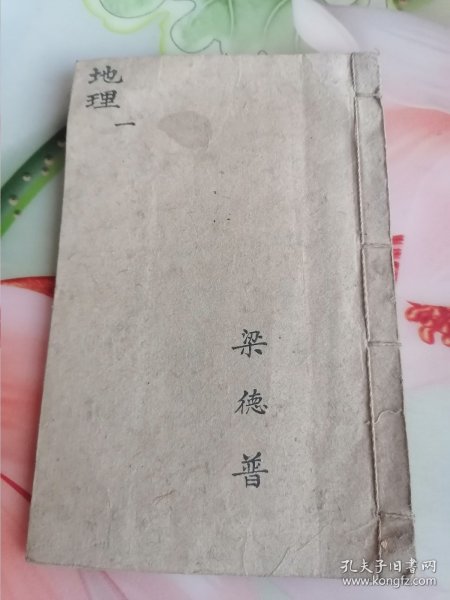 地理
一
梁德普
孔夫子旧书网
www.kongfz.com